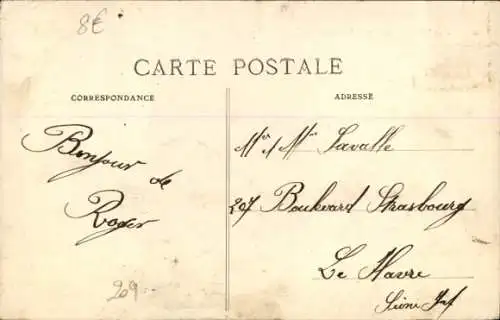 8€
CARTE POSTALE
CORRESPONDANCE
ADRESSE
Bonjour de
Roger
Mr et Mme Lavalle
207 Boulevard Strasbourg
Le Havre
Seine Inf
209